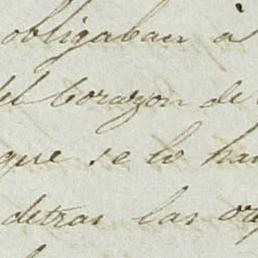 obligaban à
del Corazon de
que se lo han
detras las